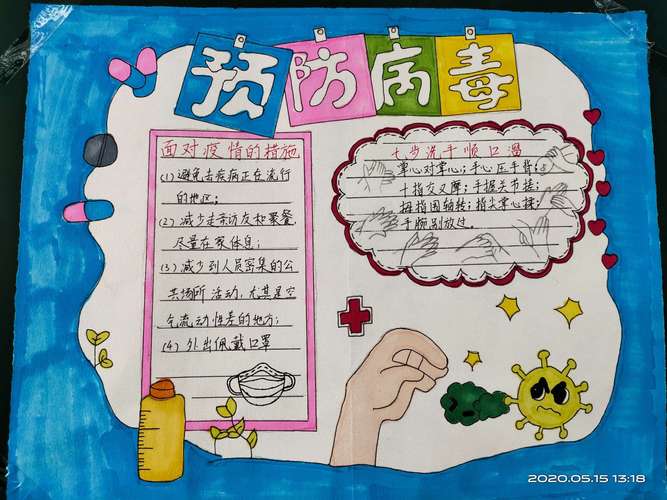 预防病毒
面对疫情的措施
(1)避免去疾病正在流行
的地区;
(2)减少走亲访友和聚餐,
尽量在家休息;
(3)减少到人员密集的公
共场所活动,尤其是空
气流动性差的地方;
(4)外出佩戴口罩
七步洗手顺口溜
掌心对掌心;手心压手背;
十指交叉摩;手握关节搓;
拇指围轴转;指尖掌心揉;
手腕别放过。
2020.05.15 13:18